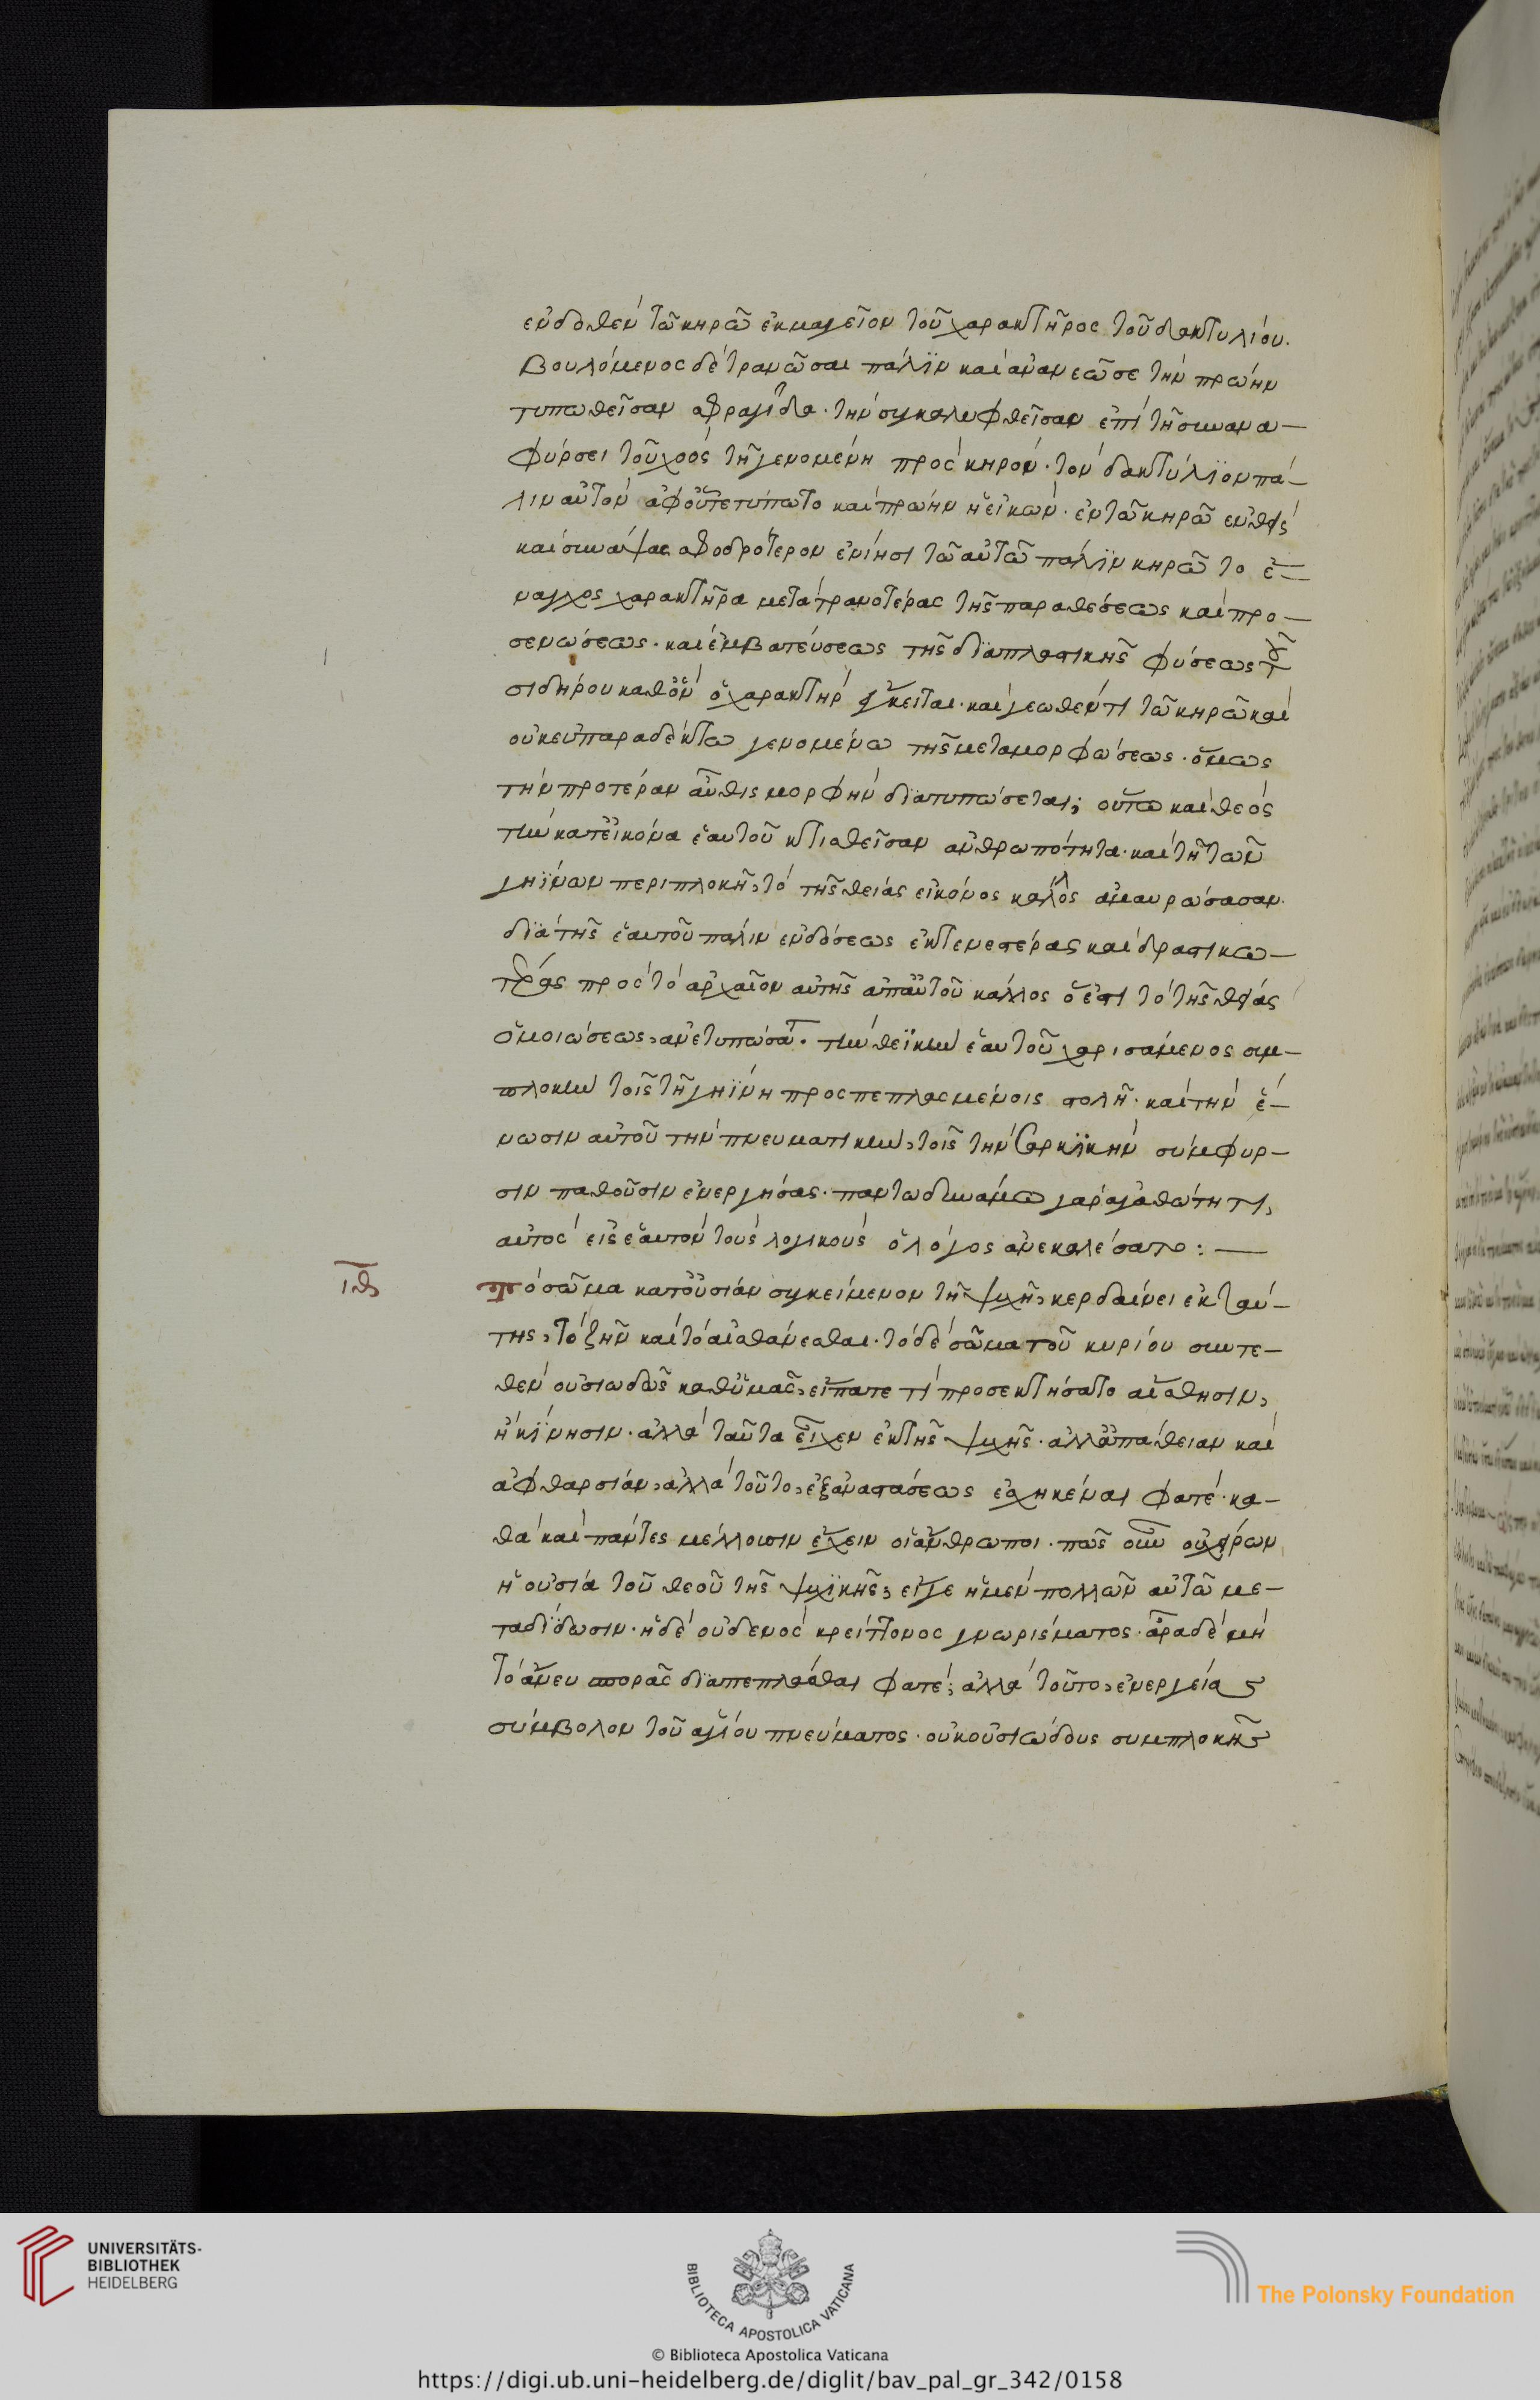 ενδοθὲν τῶ κηρῶ ἐκμαγεῖον τοῦ χαρακτῆρος τοῦ δακτυλίου.
Βουλόμενος δὲ τρανῶσαι πάλϊν καὶ ἀνανεῶσε τὴν πρώην
τυπωθεῖσαν σφραγίδα · τὴν συγκαλυφθεῖσαν ἐπὶ τῆ συνανα-
φύρσει τοῦ χοὸς τῆ γενομένη πρὸς κηρόν · τὸν δακτύλϊον πά-
λιν αὐτὸν ἀφ' οὗ τετύπωτο καὶ πρώην ἡ εἰκὼν · ἐν τῶ κηρῶ ἐνθεὶς
καὶ συνάψας σφοδρότερον ἐνίησι τῶ αὐτῶ πάλϊν κηρῶ το ἔ-
ναγχος χαρακτῆρα μετὰ τρανοτέρας τῆς παραθέσεως καὶ προ-
σενώσεως · καὶ ἐμβατεύσεως τῆς διαπλαστικῆς φύσεως τοῦ
σιδήρου καθ' ὃν ὁ χαρακτὴρ ἔγκειται · καὶ γεωθέντι τῶ κηρῶ καὶ
οὐκ εὐπαραδέκτω γενομένω τῆς μεταμορφώσεως · ὅμως
τὴν προτέραν αὖθις μορφὴν διατυπώσεται; οὕτω καὶ θεὸς
τὴν κατ' εἰκόνα ἑαυτοῦ κτισθεῖσαν ἀνθρωπότητα · καὶ τῆ τῶν
γηΐνων περιπλοκῆ, τὸ τῆς θείας εἰκόνος κάλλος ἀμαυρώσασαν.
διὰ τῆς ἑαυτοῦ πάλιν ἐνδόσεως ἐκτενεστέρας καὶ δραστικω-
τέρας πρὸς τὸ ἀρχαῖον αὐτῆς ἀπ' αὐτοῦ κάλλος ὅ ἐστι τὸ τῆς θείας
ὁμοιώσεως, ἀνετυπώσατο · τὴν θεϊκὴν ἑαυτοῦ χαρισάμενος συμ-
πλοκὴν τοῖς τῆ γηΐνη προσπεπλασμένοις στολῆ · καὶ τὴν ἕ-
νωσιν αὐτοῦ τὴν πνευματικὴν, τοῖς τὴν σαρκϊκὴν σύμφυρ-
σιν παθοῦσιν ἐνεργήσας · παντωδυνάμω γὰρ ἀγαθώτητι,
αὐτὸς εἰς ἑαυτὸν τοὺς λογικοὺς ὁ λόγος ἀνεκαλέσατο : —
ιθ
το σῶμα κατ' οὐσίαν συγκείμενον τῆ ψυχῆ, κερδαίνει ἐκ ταύ-
της, τὸ ζῆν καὶ τὸ αἰσθάνεσθαι · τὸ δὲ σῶμα τοῦ κυρίου συντε-
θὲν οὐσιωδῶς καθ' ὑμᾶς, εἴπατε τί προσεκτήσατο αἴσθησιν,
ἢ κίνησιν · ἀλλὰ ταῦτα εἶχεν ἐκ τῆς ψυχῆς · ἀλλ' ἀπάθειαν καὶ
ἀφθαρσίαν, ἀλλὰ τοῦτο, ἐξ ἀναστάσεως ἐσχηκέναι φατέ · κα-
θὰ καὶ πάντες μέλλουσιν ἔχειν οἱ ἄνθρωποι · πῶς οὖν οὐ χείρων
ἡ οὐσία τοῦ θεοῦ τῆς ψυχϊκῆς, εἴγε ἡ μὲν πολλῶν αὐτῶ με-
ταδίδωσιν · ἡ δὲ οὐδενὸς κρείττονος γνωρίσματος · ἆρα δὲ μὴ
τὸ ἄνευ σπορᾶς διαπεπλᾶσθαι φατέ; ἀλλὰ τοῦτο, ἐνεργείας
σύμβολον τοῦ ἁγίου πνεύματος · οὐκ οὐσιώδους συμπλοκῆς
UNIVERSITÄTS-
BIBLIOTHEK
HEIDELBERG
BIBLIOTECA APOSTOLICA VATICANA
The Polonsky Foundation
© Biblioteca Apostolica Vaticana
https://digi.ub.uni-heidelberg.de/diglit/bav_pal_gr_342/0158